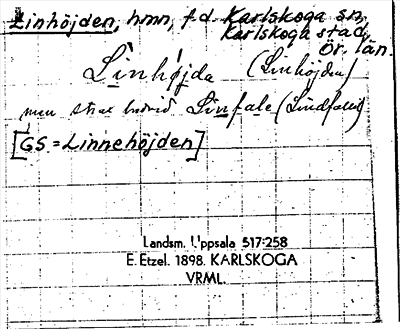 Linhöjden, hmn, f.d. Karlskoga sn,
Karlskoga stad,
Ör. län
Linhöjda (Linhöjden)
men strax bredvid Linfale (Lindfallet)
[GS = Linnehöjden]
Landsm. Uppsala 517:258
E. Etzel. 1898. KARLSKOGA
VRML.